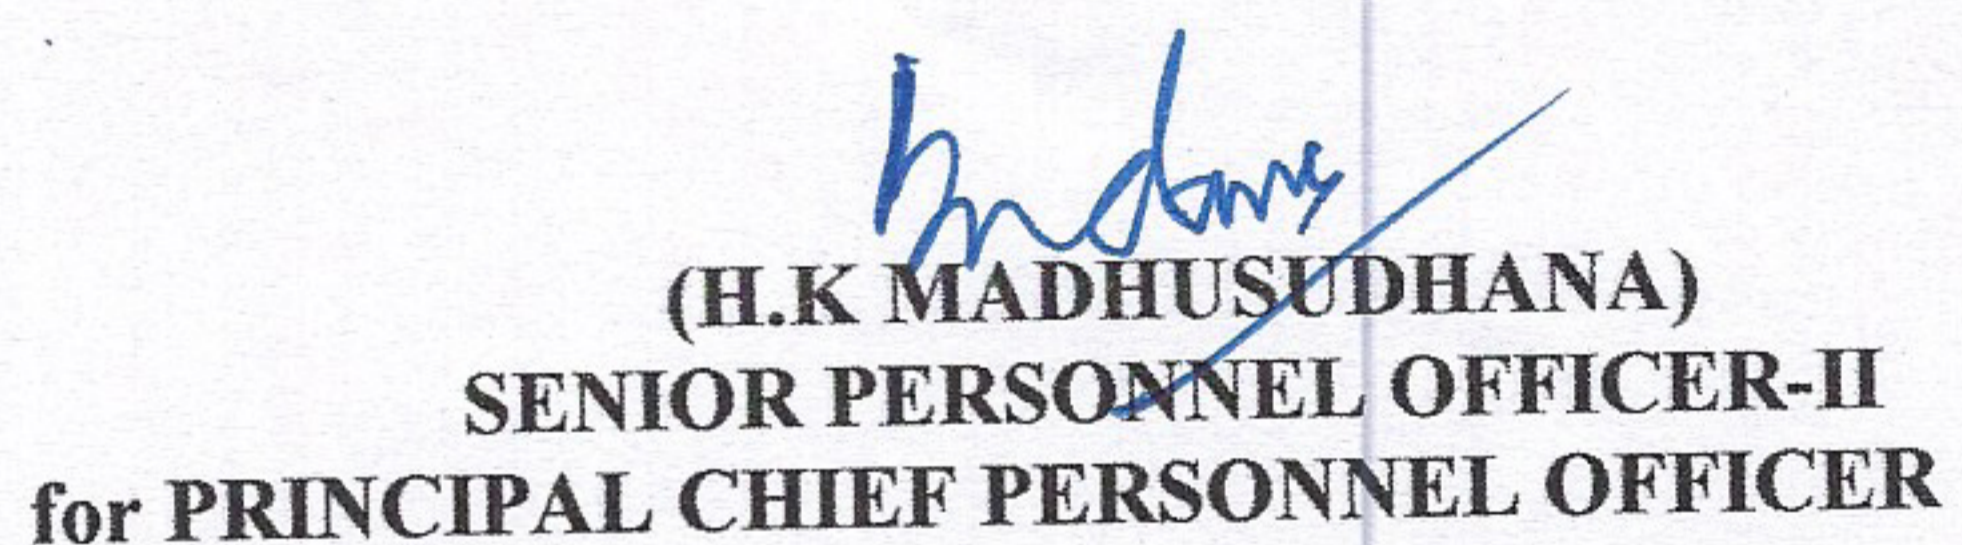 (H.K MADHUSUDHANA)
SENIOR PERSONNEL OFFICER-II
for PRINCIPAL CHIEF PERSONNEL OFFICER